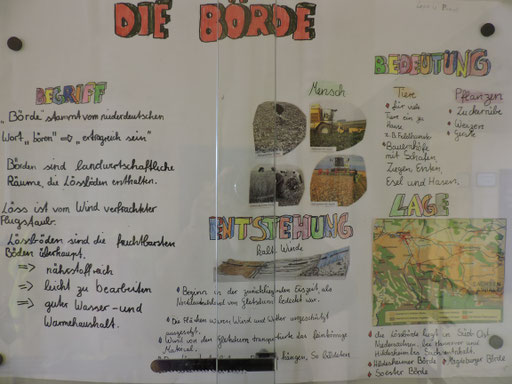 DIE BÖRDE
BEGRIFF
„Börde" stammt vom niederdeutschen
Wort „bören" => „ertragreich sein"
Börden sind landwirtschaftliche
Räume, die Lössböden enthalten.
Löss ist vom Wind verfrachteter
Flugstaub.
Lössböden sind die fruchtbarsten
Böden überhaupt.
=> nährstoffreich
=> leicht zu bearbeiten
=> guter Wasser- und
Wärmehaushalt.
Mensch
ENTSTEHUNG
kalte Winde
Beginn in der zurückliegenden Eiszeit, als
Norddeutschland von Gletschern bedeckt war.
Die Flächen waren Wind und Wetter ungeschützt
ausgesetzt.
Wind von den Gletschern transportierte das feinkörnige
Material.
hängen, So
BEDEUTUNG
Tiere
für viele
Tiere ein zu
Hause
z.B. Feldhamster
Bauernhöfe
mit Schafen,
Ziegen, Enten,
Esel und Hasen.
Pflanzen
Zuckerrübe
Weizen
Gerste
LAGE
die Lössbörde liegt in Süd-Ost
Niedersachsen, bei Hannover und
Hildesheim bis Sachsen-Anhalt.
Hildesheimer Börde
Magdeburger Börde
Soester Börde